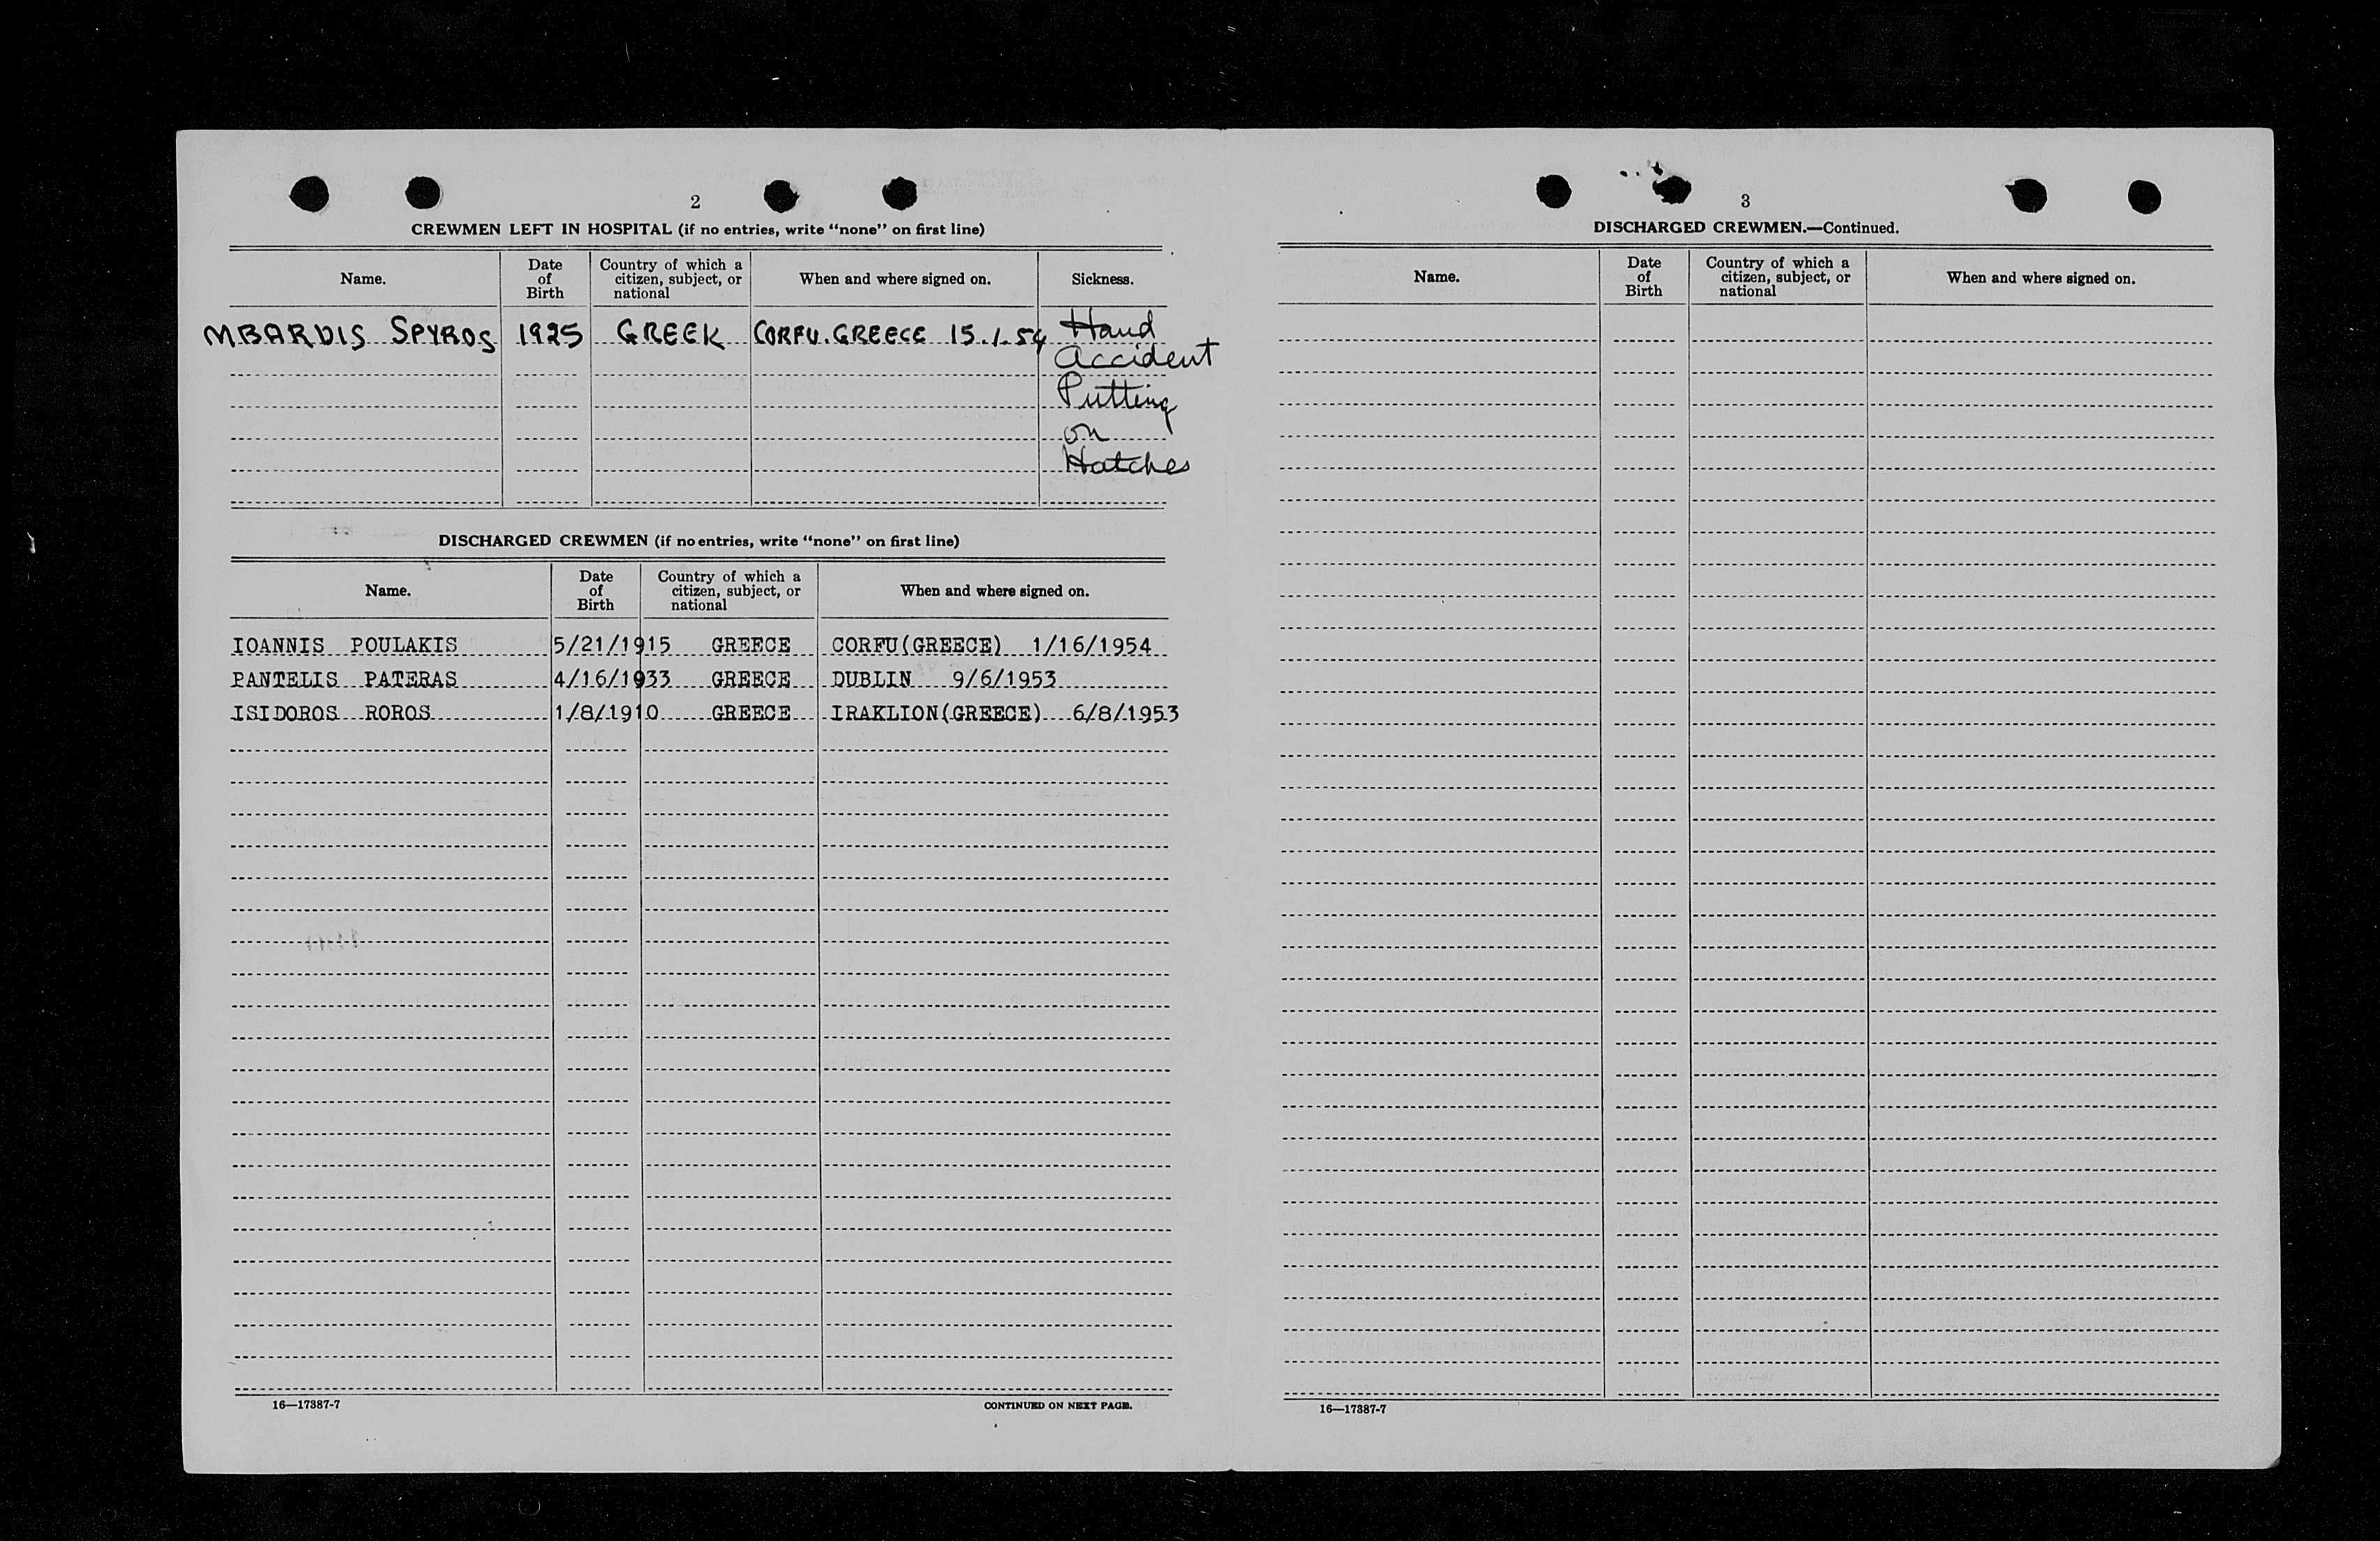 2
CREWMEN LEFT IN HOSPITAL (if no entries, write "none" on first line)
Name. Date of Birth Country of which a citizen, subject, or national When and where signed on. Sickness.
MBARDIS SPYROS 1925 GREEK CORFU. GREECE 15.1.54 Hand
Accident
Putting
on
Hatches
DISCHARGED CREWMEN (if no entries, write "none" on first line)
Name. Date of Birth Country of which a citizen, subject, or national When and where signed on.
IOANNIS POULAKIS 5/21/1915 GREECE CORFU(GREECE) 1/16/1954
PANTELIS PATERAS 4/16/1933 GREECE DUBLIN 9/6/1953
ISIDOROS ROROS 1/8/1910 GREECE IRAKLION(GREECE) 6/8/1953
16—17387-7 CONTINUED ON NEXT PAGE.
3
DISCHARGED CREWMEN.—Continued.
Name. Date of Birth Country of which a citizen, subject, or national When and where signed on.
16—17387-7